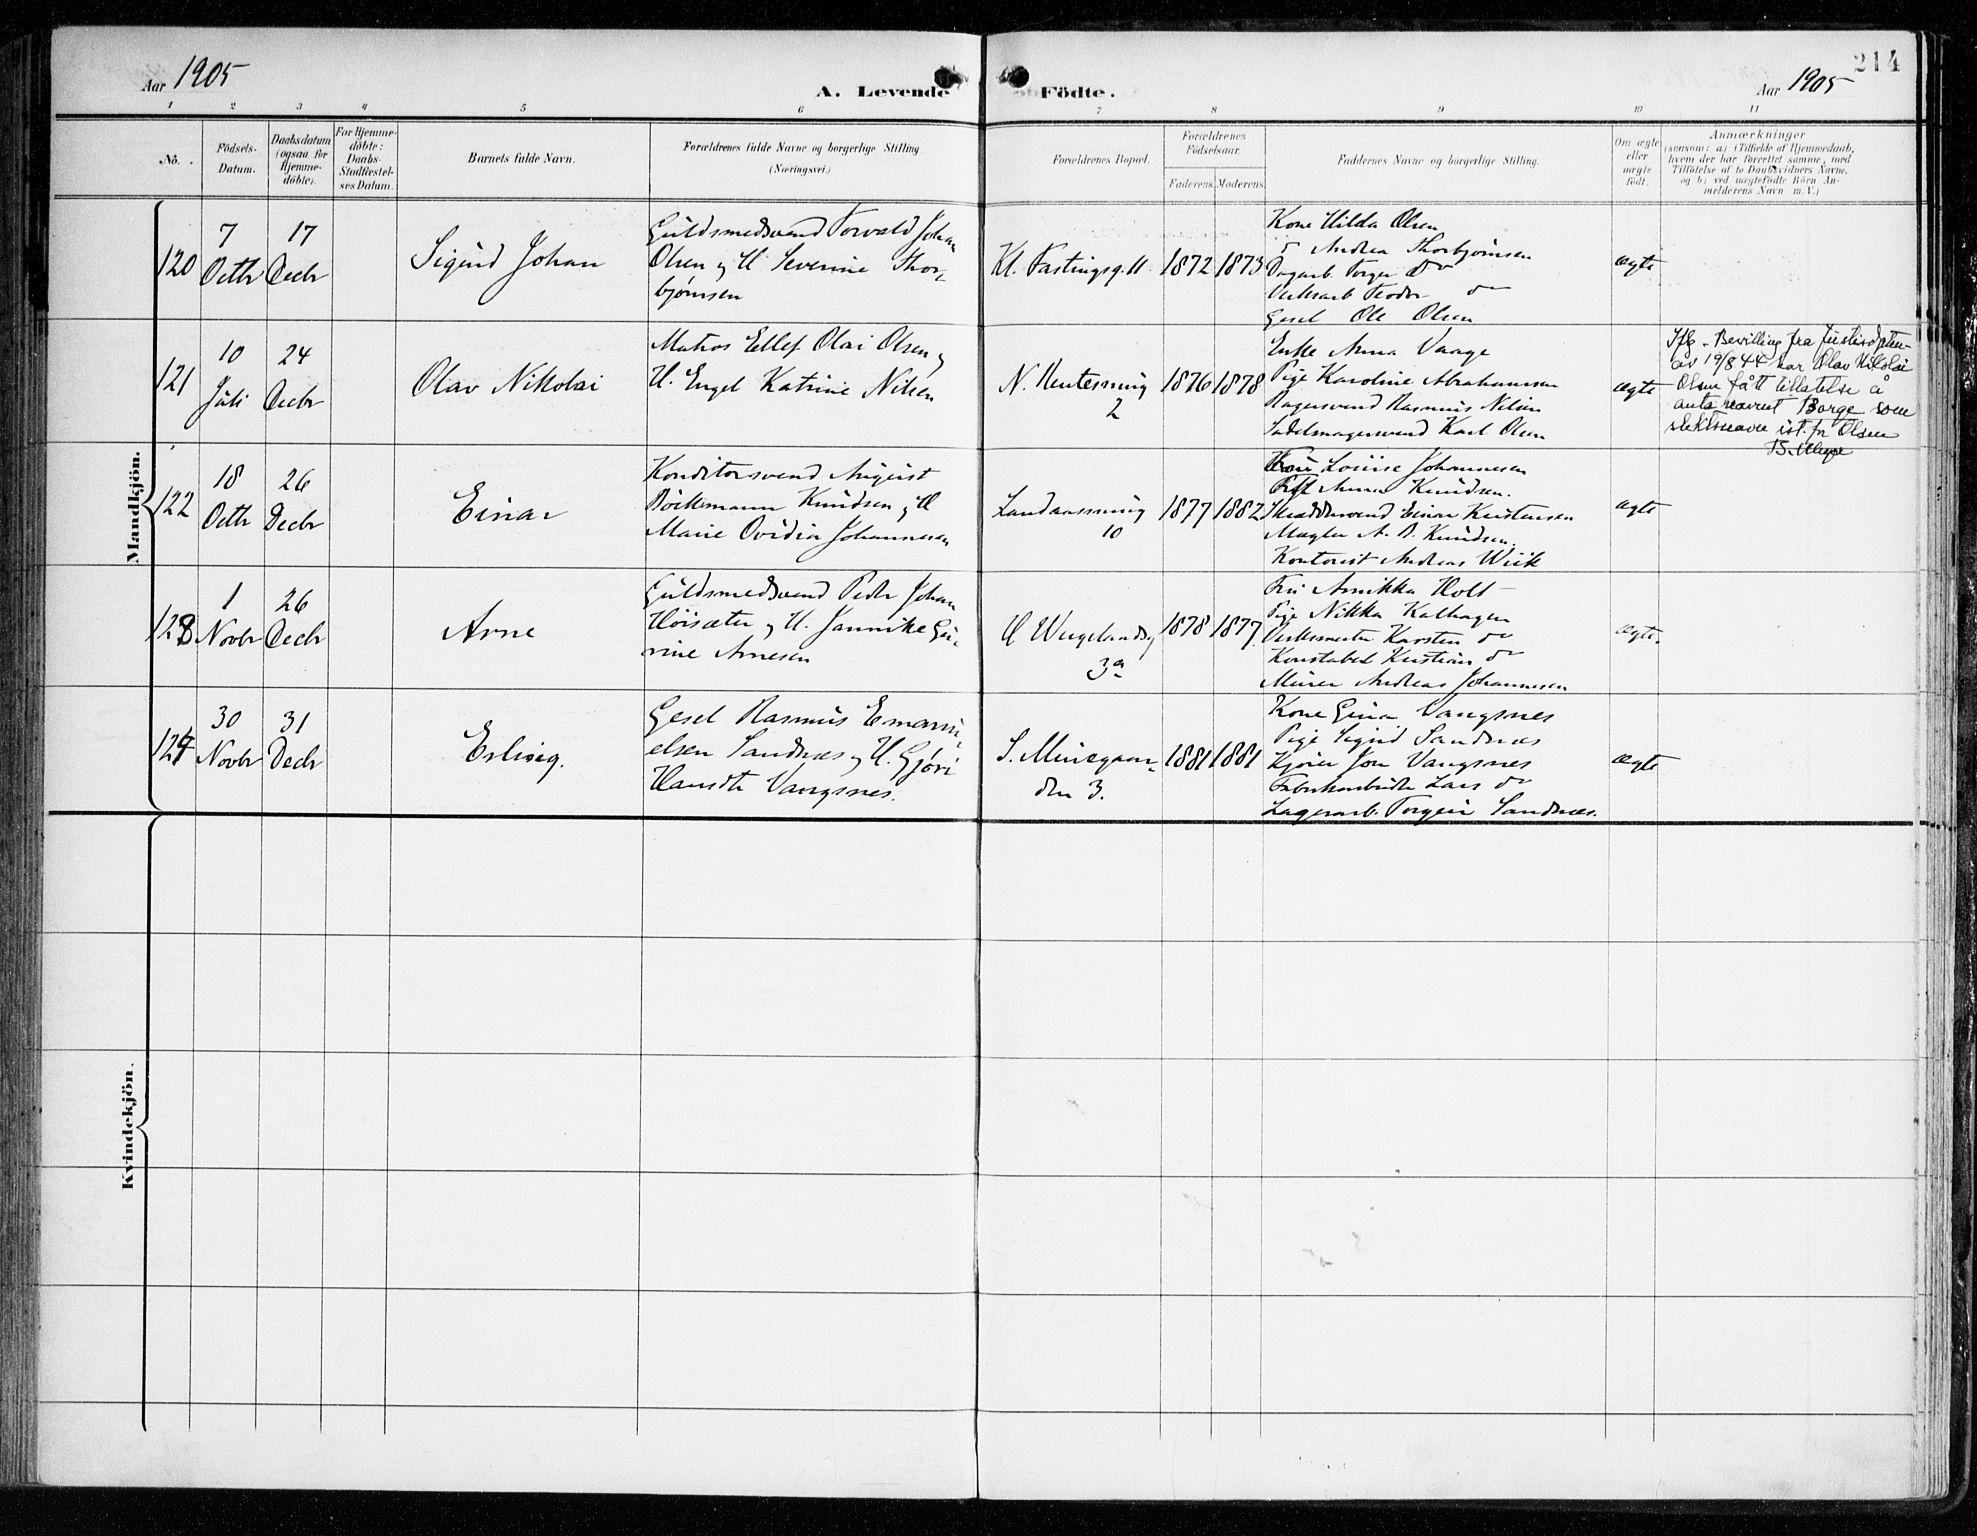 Aar 1905
A. Levende Födte.
Aar 1905
214
1 2 3 4 5 6 7 8 9 10 11
No.
Födsels-Datum.
Daabsdatum (ogsaa for Hjemme-döbte).
For Hjemme-döbte: Daabs-Stadfæstel-ses Datum.
Barnets fulde Navn.
Forældrenes fulde Navne og borgerlige Stilling.
(Næringsvei.)
Forældrenes Bopæl.
Forældrenes Födselsaar.
Faderens. Moderens.
Faddernes Navne og borgerlige Stilling.
Om ægte eller uægte födt.
Anmærkninger
(saasom: a) i Tilfælde af Hjemmedaab,
hvem der har forrettet samme, med
Tilföielse af to Daabsvidners Navne.
og b) ved uægtefödte Börn An-
melderens Navn m. V.)
Mandkjön.
120
7 Octbr
17 Decbr
Sigurd Johan
Guldsmedsvend Torvald Johan
Olsen og H. Severine Thor-
bjørnsen
Kl. Fastingsg. 11
1872 1873
Kone Hilda Olsen
do Andrea Thorbjørnsen
Dagarb Torger do
Verksarb Teodor do
Gesel Ole Olsen
ægte
121
10 Juli
24 Decbr
Olav Nikolai
Matros Ellef Olai Olsen og
H. Engel Katrine Nilsen
N. Rentesmung
2
1876 1878
Enke Anna Vaage
Pige Karoline Abrahamsen
Bagersvend Rasmus Nilsen
Sadelmagersvend Karl Olsen
ægte
Ifg. Bevilling fra Justisdpten-
av 19/8 44 har Olav Nikolai
Olsen fått tillatelse å
anta navnet Borge som
slektsnavn ist. fr Olsen
122
18 Octbr
26 Decbr
Einar
Konditorsvend August
Böckmann Knudsen og H
Marie Ovidia Johannesen
Landaasmung
10
1877 1882
Fru Louise Johannesen
Frk Anna Knudsen.
Skræddersvend Einar Kristensen
Mægler A. B. Knudsen.
Kontorist Andreas Wiik
ægte
123
1 Novbr
26 Decbr
Arne
Guldsmedsvend Peder Johan
Høisæter og H. Jannike Gu-
rine Arnesen
H Wergelandsg
3a
1878 1877
Fru Annikka Holt
Pige Nikka Kalhagen
Verksmester Karsten do
Konstabel Kristian do
Murer Andreas Johannesen
ægte.
124
30 Novbr
31 Decbr
Erling.
Gesel Rasmus Emanu-
elsen Sandnes og H. Gjøri
Hansdtr Vangsnes.
S. Muregaar-
den 3.
1881 1881
Kone Gina Vangsnes
Pige Sigrid Sandnes
Kjører Jon Vangsnes
Fabrikarbeider Lars do
Lagerarb. Torgeir Sandnes.
ægte
Kvindekjön.